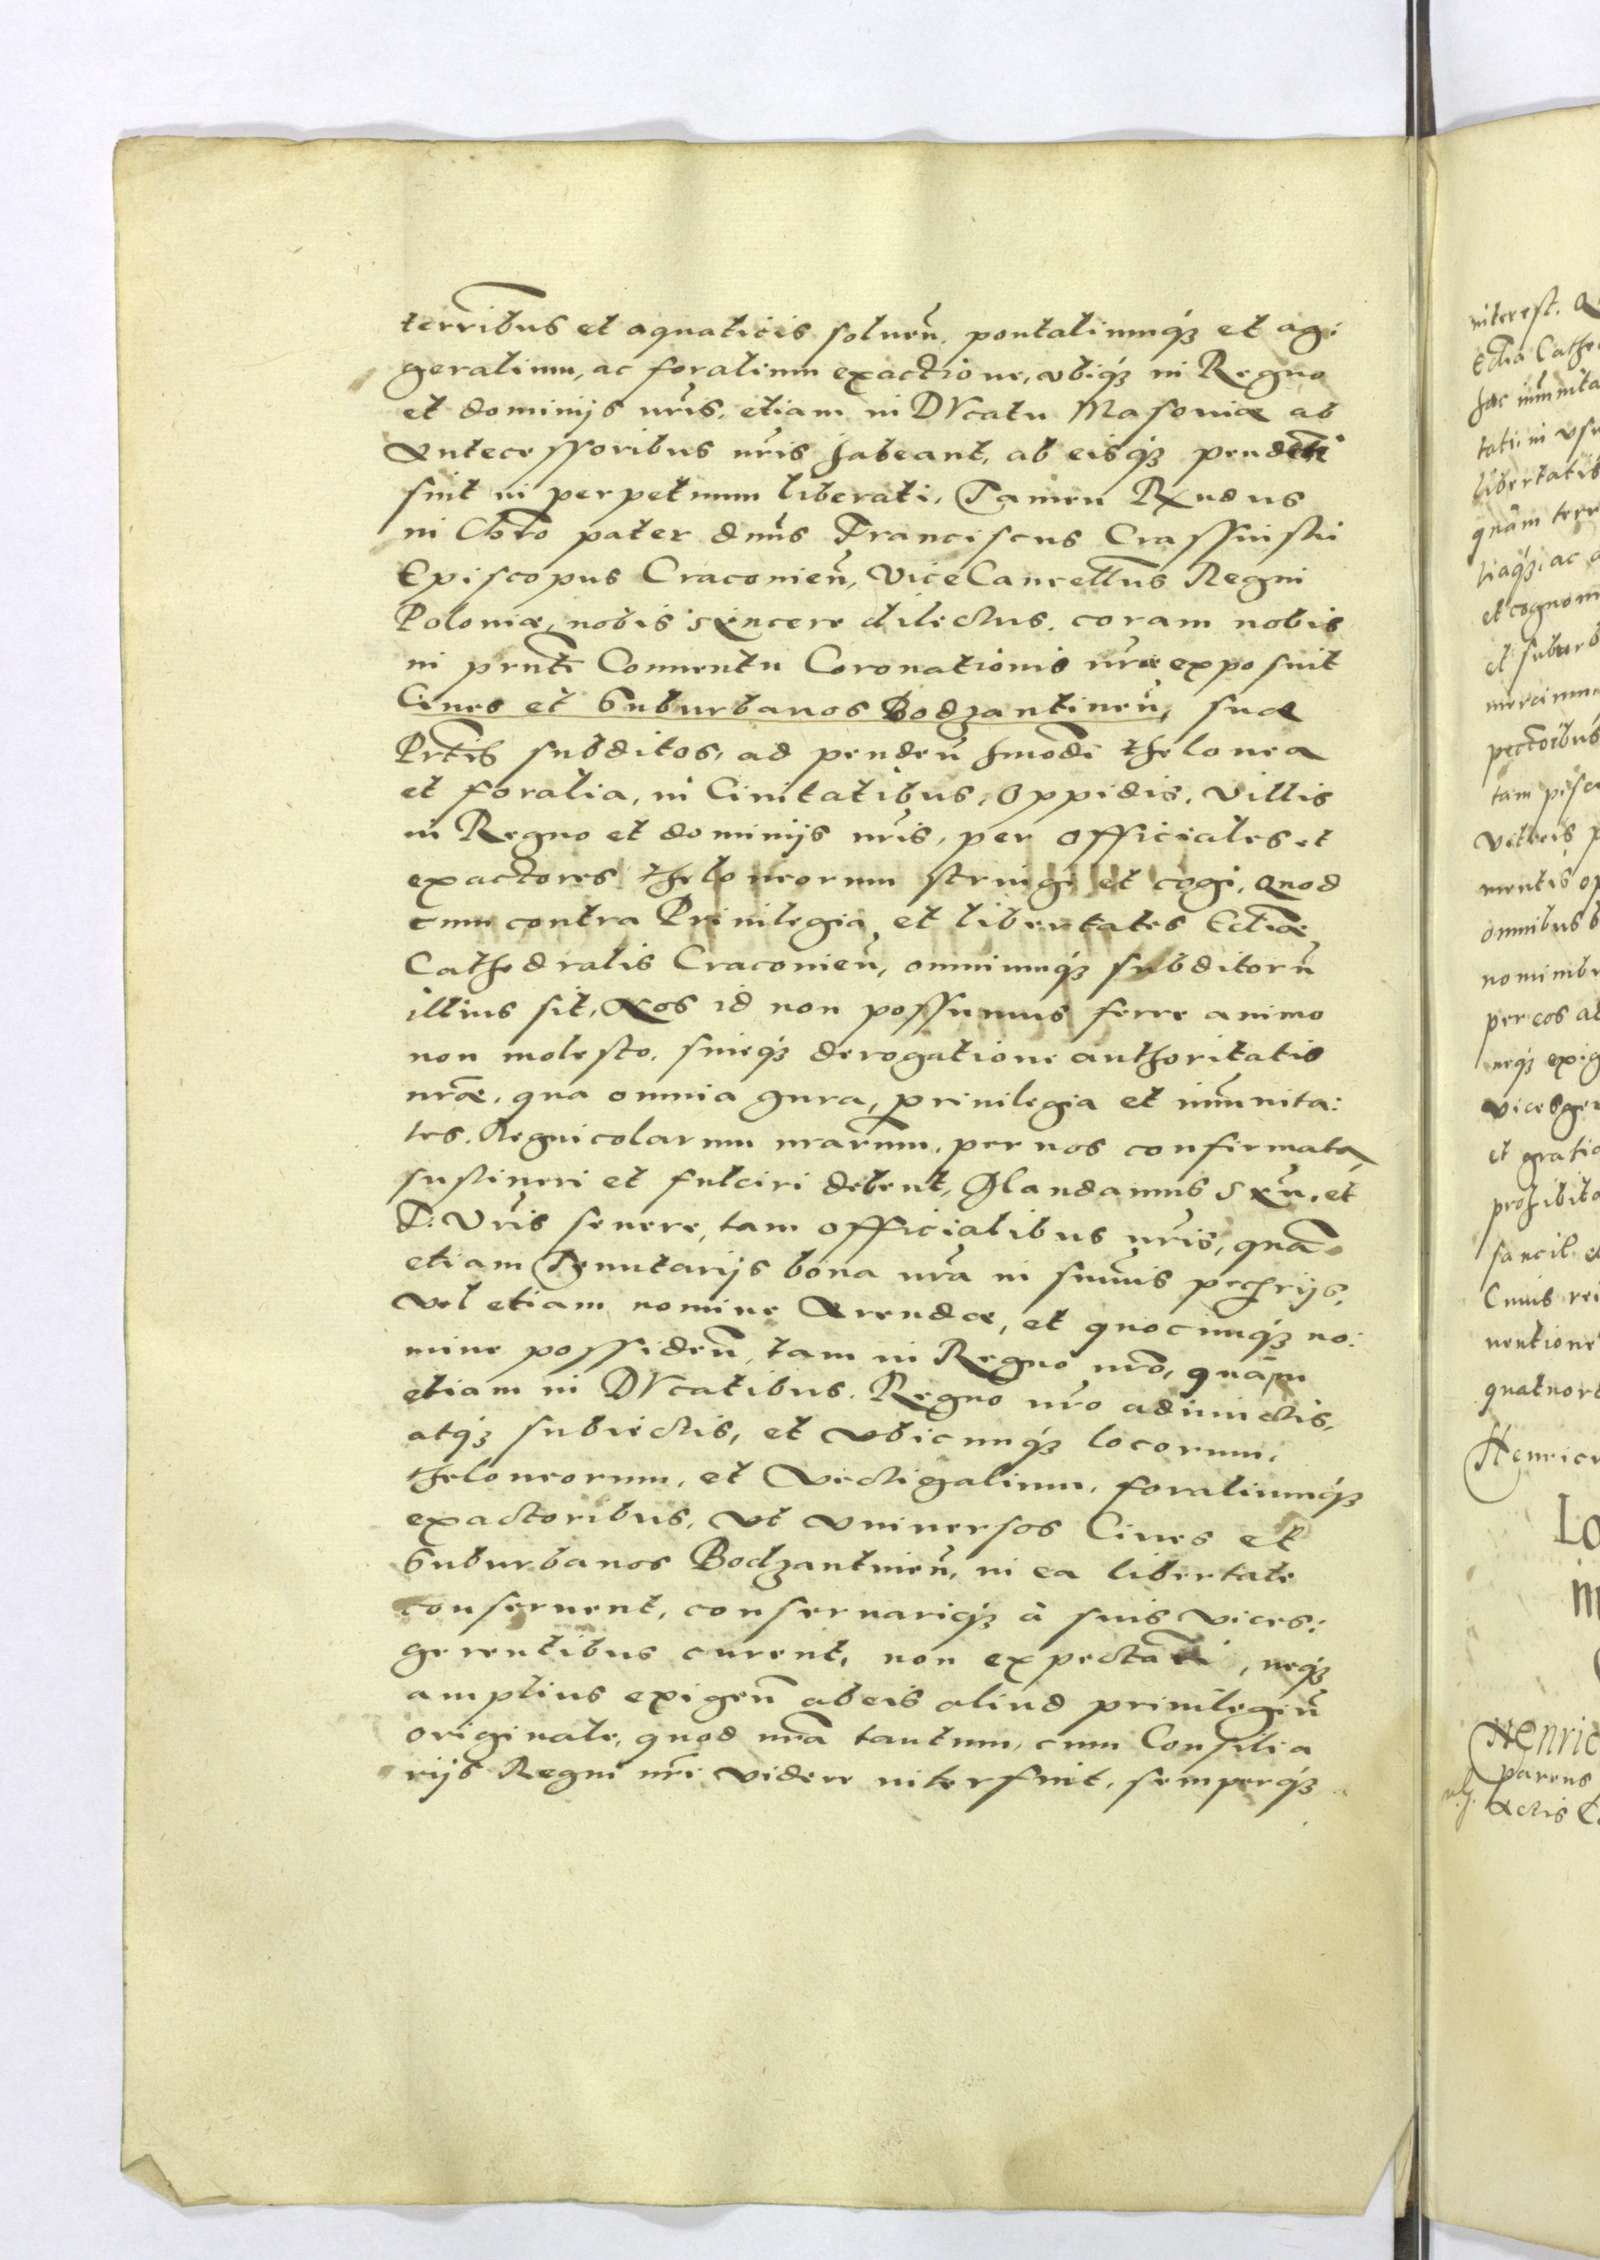 terribus et aquaticis soluen̄. pontaliumq́ꝫ et agi
geralium, ac foralium exactione, vbiq́ꝫ in Regno
et dominijs nr̄is, etiam in DVcatu Masouiæ ab
Antecessoribus nr̄is habeant, ab eisq́ꝫ
sint in perpetuum liberati, Tamen Rx̄ndus
in Chr̄o pater dn̄us Franciscus Crassinski
Episcopus Cracouien̄, ViceCancell̄us Regni
Poloniæ, nobis syncere dilectus, coram nobis
in prn̄ti Conuentu Coronationis nr̄æ exposuit
Ciues et Suburbanos Bodzantinen̄, suæ
subditos, ad penden̄ hmōdi thelonea
et foralia, in Ciuitatibus, Oppidis, Villis
in Regno et dominijs nr̄is, per Officiales et
exactores theloneorum stringi et cogi, Quod
cum contra Priuilegia et libertates Eccl̄iæ
Cathedralis Cracouien̄, omniumq́ꝫ subditorū
illius sit, Nos id non possumus ferre animo
non molesto, sineq́ꝫ derogatione authoritatis
nr̄æ, qua omnia Iura, priuilegia et im̄unita:
tes, Regnicolarum nrarum̄, per nos confirmata,
sustineri et fulciri debent, Mandamus Syn̄, et
F: Vr̄is seuere, tam officialibus nr̄is, quā
etiam Tenutarijs bona nr̄a in sum̄is pec̄rijs,
vel etiam nomine Arendæ, et quocunq́ꝫ no:
mine possiden̄, tam in Regno nr̄o, quàm
etiam in DVcatibus, Regno nr̄o adiunctis,
atq́ꝫ subiectis, et vbicunq́ꝫ locorum,
theloneorum, et Vectigalium, foraliumq́ꝫ
exactoribus, Vt vniuersos Ciues et
Suburbanos Bodzantinen̄, in ea libertate
conseruent, conseruariq́ꝫ à suis vices:
gerentibus curent, non, neq́ꝫ
amplius exigen̄ ab eis aliud priuilegiū
originale, quod nr̄a tantum, cum Consilia
rijs Regni nr̄i videre interfuit, semperq́ꝫ
interest.
Eccl̄ia Cathe
hac im̄unita
tati, in vsu
libertatis
quàm terr
liaq́ꝫ, ac a
et cognom
et suburb
mercimo
pectoribus
tam pisci
Vitreis p
mentis op
omnibus b
nominib
per eos at
neq́ꝫ exig
vicesger
et gratia
prohibita
sancil
Cuius rei
uentione
quatuord
Henricu
Lo
Henric
parens
Actis C